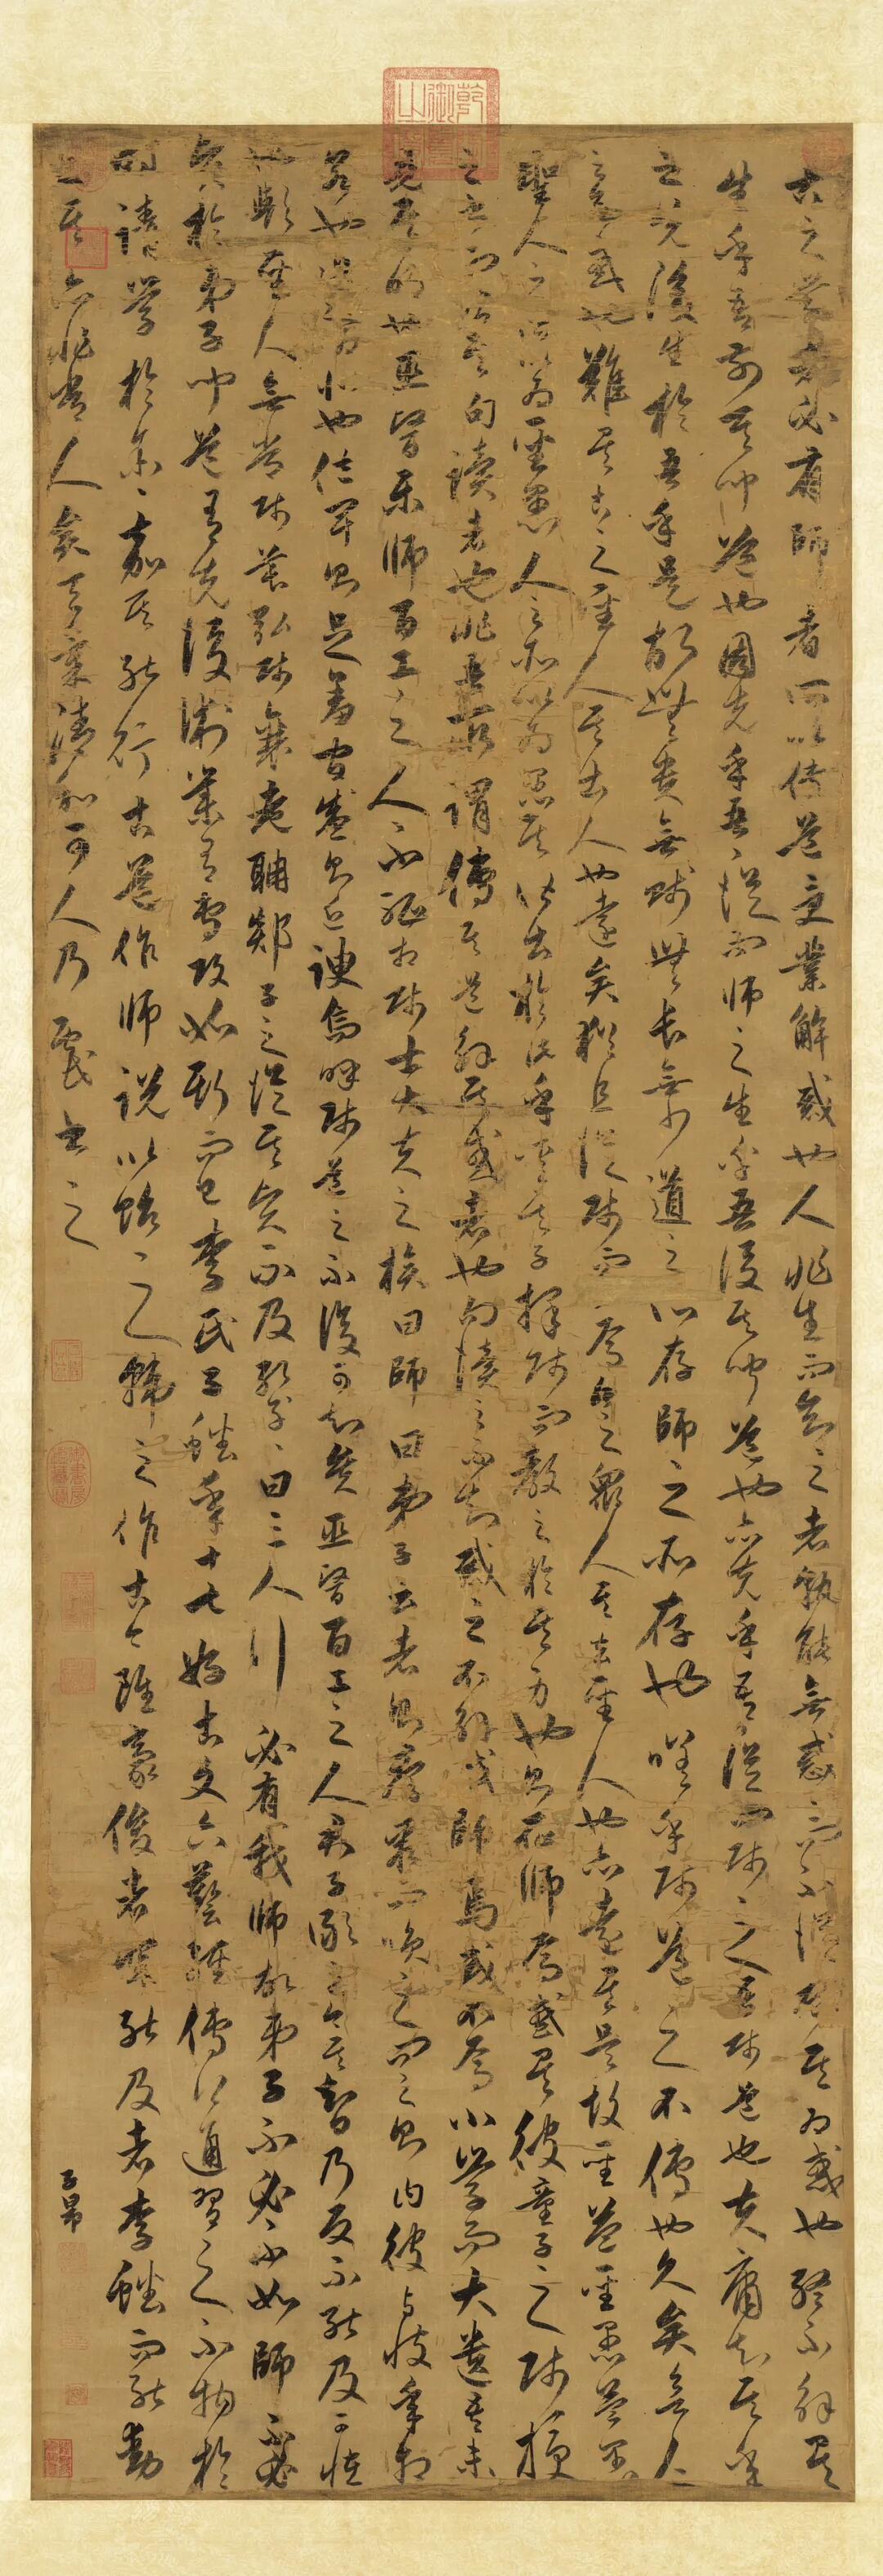 古之學者必有師者所以傳道受業解惑也人非生而知之者孰能無惑〻而不從師其為惑也終不解矣
生乎吾前其聞道也固先乎吾〻從而師之生乎吾後其聞道也亦先乎吾〻從而師之吾師道也夫庸知其年
之先後生於吾乎是故無貴無賤無長無少道之所存師之所存也嗟乎師道之不傳也久矣欲人
之無惑也難矣古之聖人其出人也遠矣猶且從師而問焉今之眾人其去聖人也亦遠矣是故聖益聖愚益愚
聖人之所以為聖愚人之所以為愚其皆出於此乎愛其子擇師而教之於其身也則恥師焉惑矣彼童子之師授
之書而習其句讀者也非吾所謂傳其道解其惑者也句讀之不知惑之不解或師焉或不焉小學而大遺吾未
見其明也巫醫樂師百工之人不恥相師士大夫之族曰師曰弟子云者則群聚而笑之問之則曰彼與彼年相
若也道相似也位卑則足羞官盛則近諛嗚呼師道之不復可知矣巫醫百工之人君子鄙之今其智乃反不能及可怪
也歟聖人無常師萇弘師襄老聃郯子之徒其賢不及孔子〻曰三人行必有我師故弟子不必不如師不必
賢於弟子聞道有先後術業有專攻如斯而已李氏子蟠年十七好古文六藝經傳皆通習之不拘於
時請學於余〻嘉其能行古道作師說以貽之韓之作古今雖豪俊者罕能及者李蟠而能勤
之其亦非常人矣可人乃書之
子昂